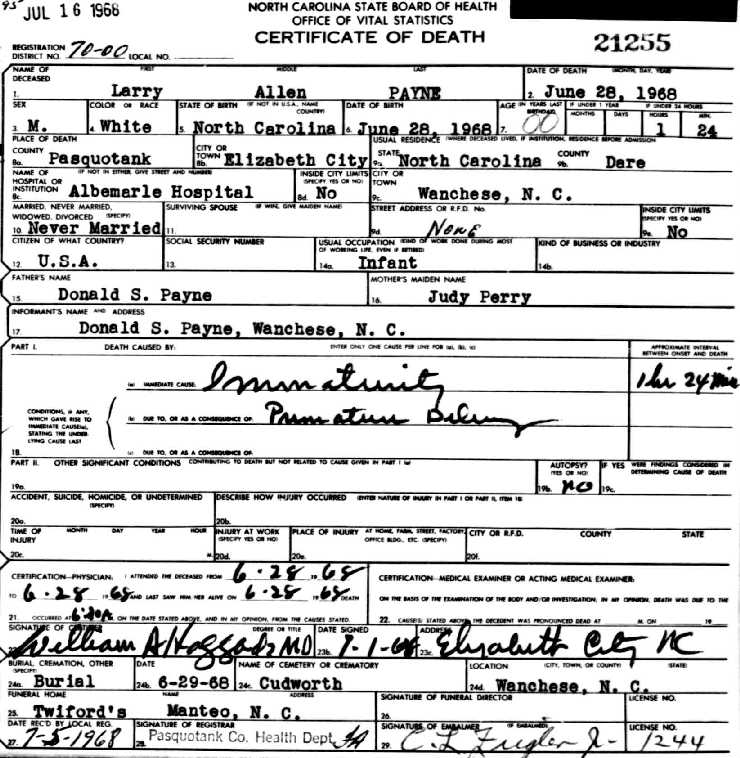 JUL 16 1968
NORTH CAROLINA STATE BOARD OF HEALTH
OFFICE OF VITAL STATISTICS
CERTIFICATE OF DEATH
21255
REGISTRATION DISTRICT NO. 70-00 LOCAL NO.
NAME OF DECEASED FIRST MIDDLE LAST DATE OF DEATH (MONTH, DAY, YEAR)
1. Larry Allen PAYNE 2. June 28, 1968
SEX COLOR OR RACE STATE OF BIRTH (IF NOT IN U.S.A., NAME COUNTRY) DATE OF BIRTH AGE (IN YEARS LAST BIRTHDAY) IF UNDER 1 YEAR MONTHS DAYS IF UNDER 24 HOURS HOURS MIN.
3. M. 4. White 5. North Carolina 6. June 28, 1968 7. 00 1 24
PLACE OF DEATH USUAL RESIDENCE (WHERE DECEASED LIVED, IF INSTITUTION, RESIDENCE BEFORE ADMISSION)
COUNTY CITY OR TOWN STATE COUNTY
8a. Pasquotank 8b. Elizabeth City 9a. North Carolina 9b. Dare
NAME OF HOSPITAL OR INSTITUTION (IF NOT IN EITHER, GIVE STREET AND NUMBER) INSIDE CITY LIMITS (SPECIFY YES OR NO) CITY OR TOWN
8c. Albemarle Hospital 8d. No 9c. Wanchese, N. C.
MARRIED, NEVER MARRIED, WIDOWED, DIVORCED (SPECIFY) SURVIVING SPOUSE (IF WIFE, GIVE MAIDEN NAME) STREET ADDRESS OR R.F.D. No. INSIDE CITY LIMITS (SPECIFY YES OR NO)
10. Never Married 11. 9d. None 9e. No
CITIZEN OF WHAT COUNTRY? SOCIAL SECURITY NUMBER USUAL OCCUPATION (KIND OF WORK DONE DURING MOST OF WORKING LIFE, EVEN IF RETIRED) KIND OF BUSINESS OR INDUSTRY
12. U.S.A. 13. 14a. Infant 14b.
FATHER'S NAME MOTHER'S MAIDEN NAME
15. Donald S. Payne 16. Judy Perry
INFORMANT'S NAME AND ADDRESS
17. Donald S. Payne, Wanchese, N. C.
PART I. DEATH CAUSED BY: ENTER ONLY ONE CAUSE PER LINE FOR (a), (b), (c) APPROXIMATE INTERVAL BETWEEN ONSET AND DEATH
(a) IMMEDIATE CAUSE: Immaturity 1 hr 24 min
CONDITIONS, IF ANY, WHICH GAVE RISE TO IMMEDIATE CAUSE(a), STATING THE UNDERLYING CAUSE LAST
(b) DUE TO, OR AS A CONSEQUENCE OF: Premature Delivery
18. (c) DUE TO, OR AS A CONSEQUENCE OF:
PART II. OTHER SIGNIFICANT CONDITIONS CONTRIBUTING TO DEATH BUT NOT RELATED TO CAUSE GIVEN IN PART I (a) AUTOPSY? (YES OR NO) IF YES WERE FINDINGS CONSIDERED IN DETERMINING CAUSE OF DEATH
19a. 19b. NO 19c.
ACCIDENT, SUICIDE, HOMICIDE, OR UNDETERMINED (SPECIFY) DESCRIBE HOW INJURY OCCURRED (ENTER NATURE OF INJURY IN PART I OR PART II, ITEM 18)
20a. 20b.
TIME OF INJURY MONTH DAY YEAR HOUR INJURY AT WORK (SPECIFY YES OR NO) PLACE OF INJURY AT HOME, FARM, STREET, FACTORY, OFFICE BLDG., ETC. (SPECIFY) CITY OR R.F.D. COUNTY STATE
20c. M. 20d. 20e. 20f.
CERTIFICATION-PHYSICIAN: I ATTENDED THE DECEASED FROM 6-28 1968 CERTIFICATION-MEDICAL EXAMINER OR ACTING MEDICAL EXAMINER:
TO 6-28 1968 AND LAST SAW HIM HER ALIVE ON 6-28 1968 DEATH ON THE BASIS OF THE EXAMINATION OF THE BODY AND/OR INVESTIGATION, IN MY OPINION, DEATH WAS DUE TO THE
21. OCCURRED AT ON THE DATE STATED ABOVE, AND IN MY OPINION, FROM THE CAUSES STATED. 22. CAUSE(S) STATED ABOVE. THE DECEDENT WAS PRONOUNCED DEAD AT M. ON 19
SIGNATURE OF DEGREE OR TITLE DATE SIGNED ADDRESS
William A Hoggard Jr MD 23b. 7-1-68 23c. Elizabeth City NC
BURIAL, CREMATION, OTHER (SPECIFY) DATE NAME OF CEMETERY OR CREMATORY LOCATION (CITY, TOWN, OR COUNTY) (STATE)
24a. Burial 24b. 6-29-68 24c. Cudworth 24d. Wanchese, N. C.
FUNERAL HOME NAME ADDRESS SIGNATURE OF FUNERAL DIRECTOR LICENSE NO.
25. Twiford's Manteo, N. C. 26.
DATE REC'D BY LOCAL REG. SIGNATURE OF REGISTRAR SIGNATURE OF EMBALMER (IF EMBALMED) LICENSE NO.
27. 7-5-1968 28. Pasquotank Co. Health Dept. 29. C. L. Zeigler Jr 1244